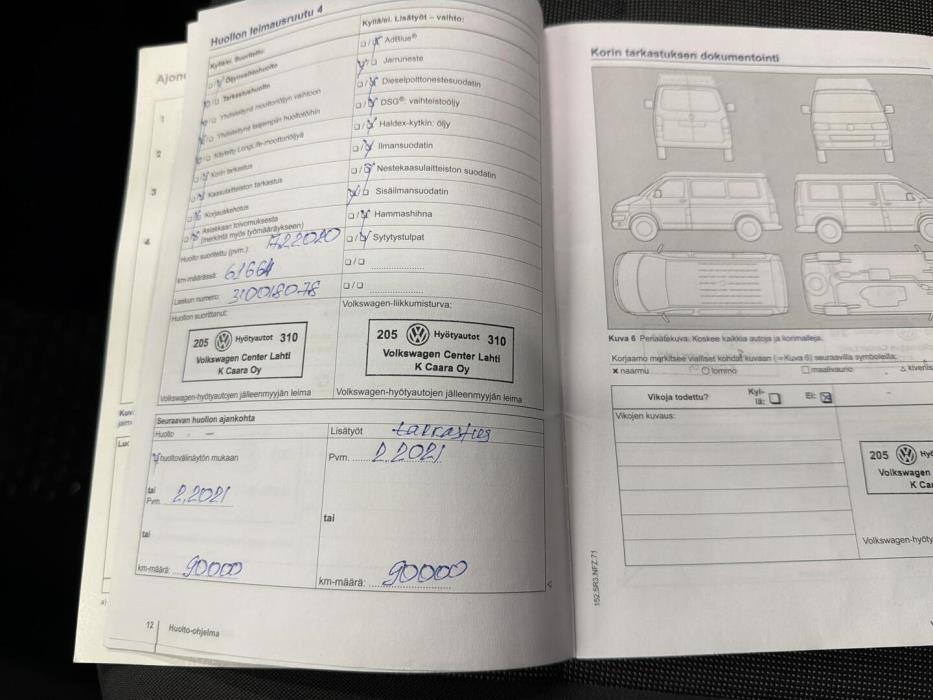 Ajon
1
2
3
4
Kuv
Luc
a)
Huollon leimausruutu 4
Kyllä/ei. Suoritettu:
Öljynvaihtohuolto
Tarkastushuolto
Yhdistettynä moottoriöljyn vaihtoon
Yhdistettynä laajempiin huoltotöihin
Käytetty LongLife-moottoriöljyä
Korin tarkastus
Kaasulaitteiston tarkastus
Korjauskehotus
Asiakkaan toivomuksesta
(merkintä myös työmääräykseen)
Huolto suoritettu (pvm.): 17.2.2020
km-määrässä: 61664
Laskun numero: 310018078
Huollon suorittanut:
205 Hyötyautot 310
Volkswagen Center Lahti
K Caara Oy
Volkswagen-hyötyautojen jälleenmyyjän leima
Kyllä/ei. Lisätyöt – vaihto:
AdBlue®
Jarruneste
Dieselpolttonestesuodatin
DSG®: vaihteistoöljy
Haldex-kytkin: öljy
Ilmansuodatin
Nestekaasulaitteiston suodatin
Sisäilmansuodatin
Hammashihna
Sytytystulpat
Volkswagen-liikkumisturva:
205 Hyötyautot 310
Volkswagen Center Lahti
K Caara Oy
Volkswagen-hyötyautojen jälleenmyyjän leima
Seuraavan huollon ajankohta
Huolto
huoltovälinäytön mukaan
tai
Pvm. 2.2021
tai
km-määrä: 90000
Lisätyöt tarkastus
Pvm. 2.2021
tai
km-määrä: 90000
12 Huolto-ohjelma
Korin tarkastuksen dokumentointi
Kuva 6 Periaatekuva. Koskee kaikkia autoja ja korimalleja.
Korjaamo merkitsee vialliset kohdat kuvaan (⇒Kuva 6) seuraavilla symboleilla:
× naarmu ○ lommo □ maalivaurio △ kivenis
Vikoja todettu? Kyl-
lä: Ei:
Vikojen kuvaus:
205 Hyö
Volkswagen
K Caa
Volkswagen-hyöty
152.5R3.NFZ.71